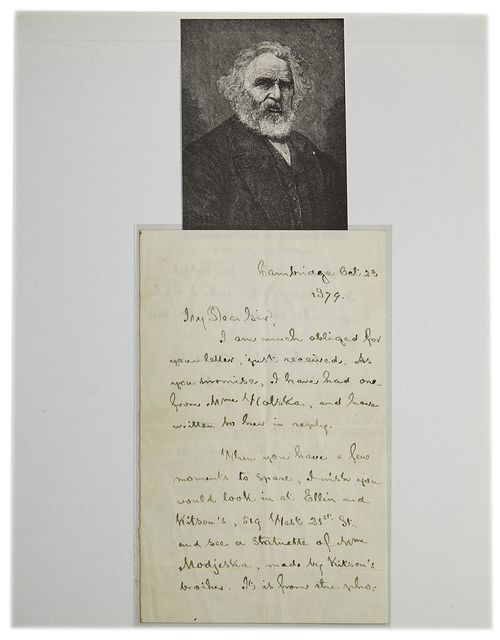 Cambridge Oct. 23
1879.
My Dear Sir,
I am much obliged for
your letter, just received. As
you surmise, I have had one
from Mme Holska, and have
written to her in reply.
When you have a few
moments to spare, I wish you
would look in at Ellin and
Kitson's, 519 West 21st St.
and see a statuette of Mme
Modjeska, made by Kitson's
brother. It is from the pho-